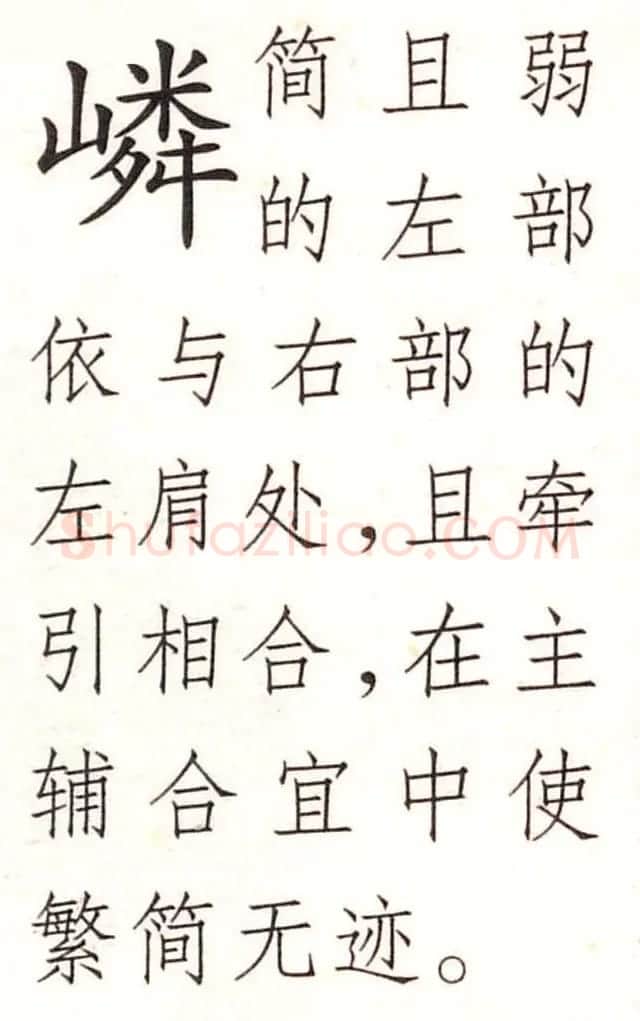 嶙
简且弱
的左部
依与右部的
左肩处,且牵
引相合,在主
辅合宜中使
繁简无迹。
Shufaziliao.COM